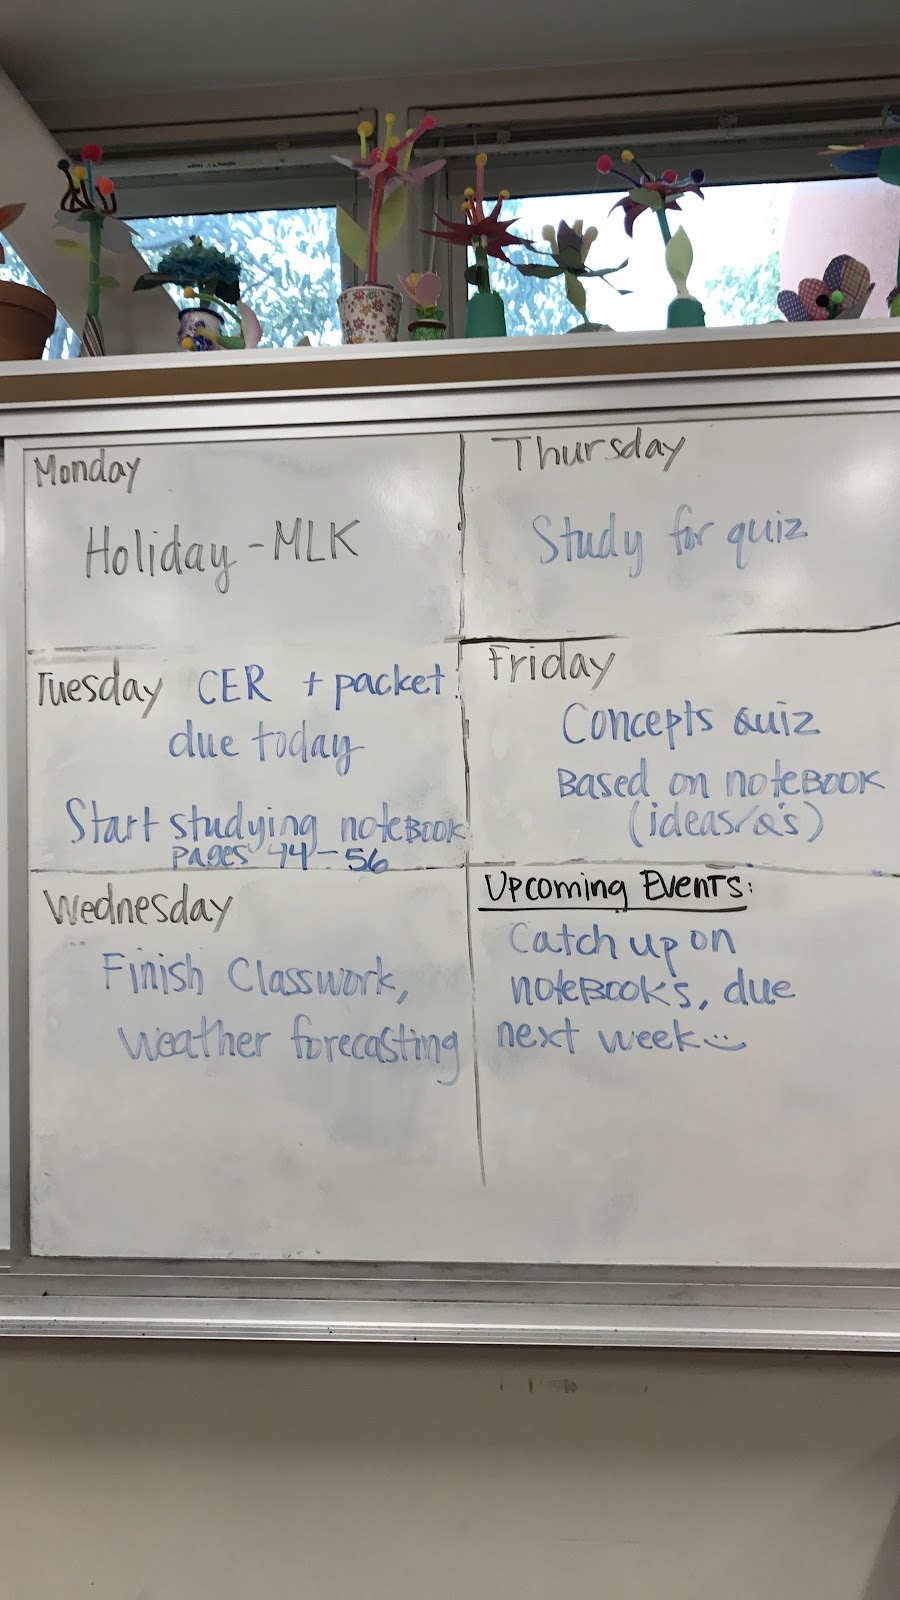 Monday
Holiday - MLK
Tuesday CER + packet
due today
Start studying noteBOOK
pages 44-56
Wednesday
Finish Classwork,
weather forecasting
Thursday
Study for quiz
Friday
Concepts Quiz
Based on noteBOOK
(ideas/Q's)
Upcoming Events:
Catch up on
noteBOOKs, due
next week